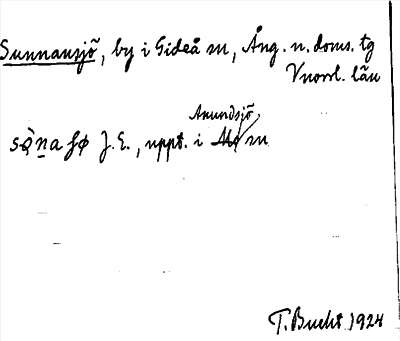 Sunnansjö, by i Gideå sn, Ång. n. doms. tg
Vnorrl. län
Anundsjö
sò̩n̩a ʃø J. E., uppt. i Mo sn
T. Bucht 1924